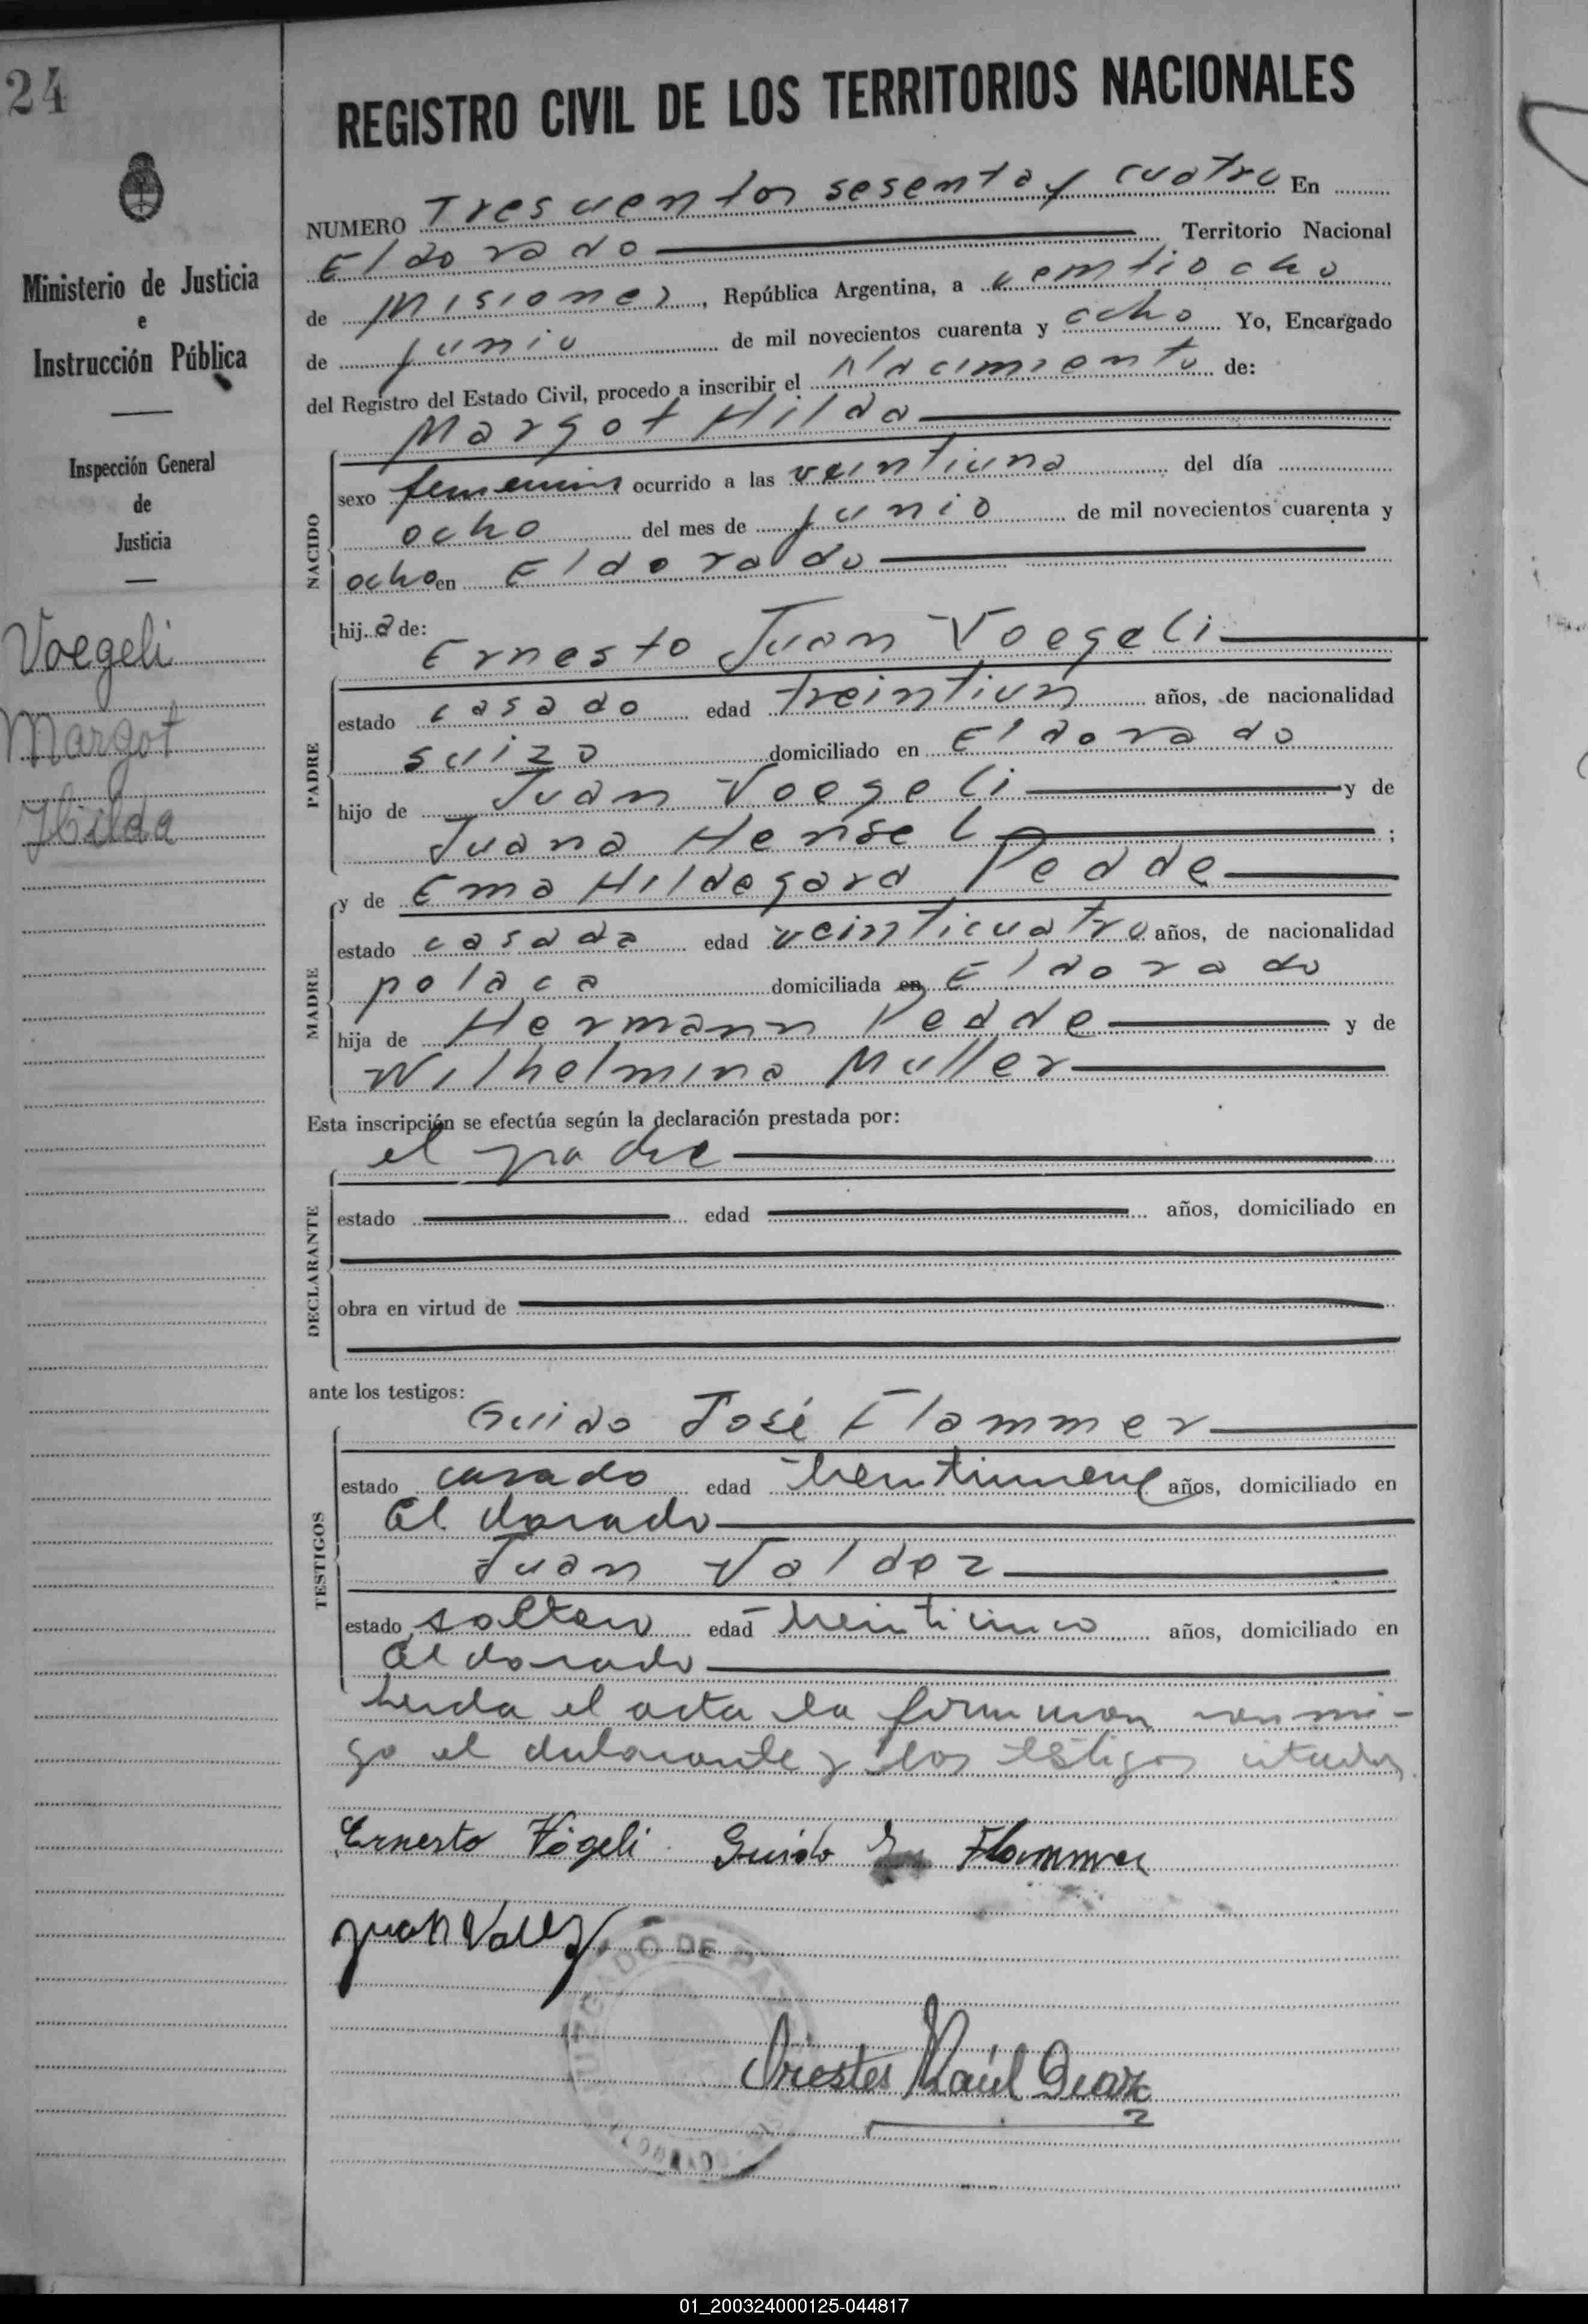 24
Ministerio de Justicia
e
Instrucción Pública
Inspección General
de
Justicia
Voegeli
Margot
Hilda
REGISTRO CIVIL DE LOS TERRITORIOS NACIONALES
NUMERO Trescuentos sesenta y cuatro En
Eldorado Territorio Nacional
de Misiones, República Argentina, a veintiocho
de junio de mil novecientos cuarenta y ocho Yo, Encargado
del Registro del Estado Civil, procedo a inscribir el Nacimiento de:
Margot Hilda
NACIDO
sexo femenino ocurrido a las veintiuna del día
ocho del mes de junio de mil novecientos cuarenta y
ocho en Eldorado
hij a de:
Ernesto Juan Voegeli
PADRE
estado casado edad treintiun años, de nacionalidad
suizo domiciliado en Eldorado
hijo de Juan Voegeli y de
Juana Hensel ;
y de Ema Hildegard Pedde
MADRE
estado casada edad veinticuatro años, de nacionalidad
polaca domiciliada en Eldorado
hija de Hermann Pedde y de
Wilhelmina Muller
Esta inscripción se efectúa según la declaración prestada por:
el padre
DECLARANTE
estado edad años, domiciliado en
obra en virtud de
ante los testigos:
Guido José Flammer
TESTIGOS
estado casado edad años, domiciliado en
El dorado
Juan Valdez
estado soltero edad años, domiciliado en
El dorado
Leida el acta la firman conmi-
go el declarante y los testigos citados
Ernesto Vögeli Guido Flammer
Juan Valdez
JUZGADO DE PAZ
Orestes Raúl Diaz
ELDORADO
01_200324000125-044817